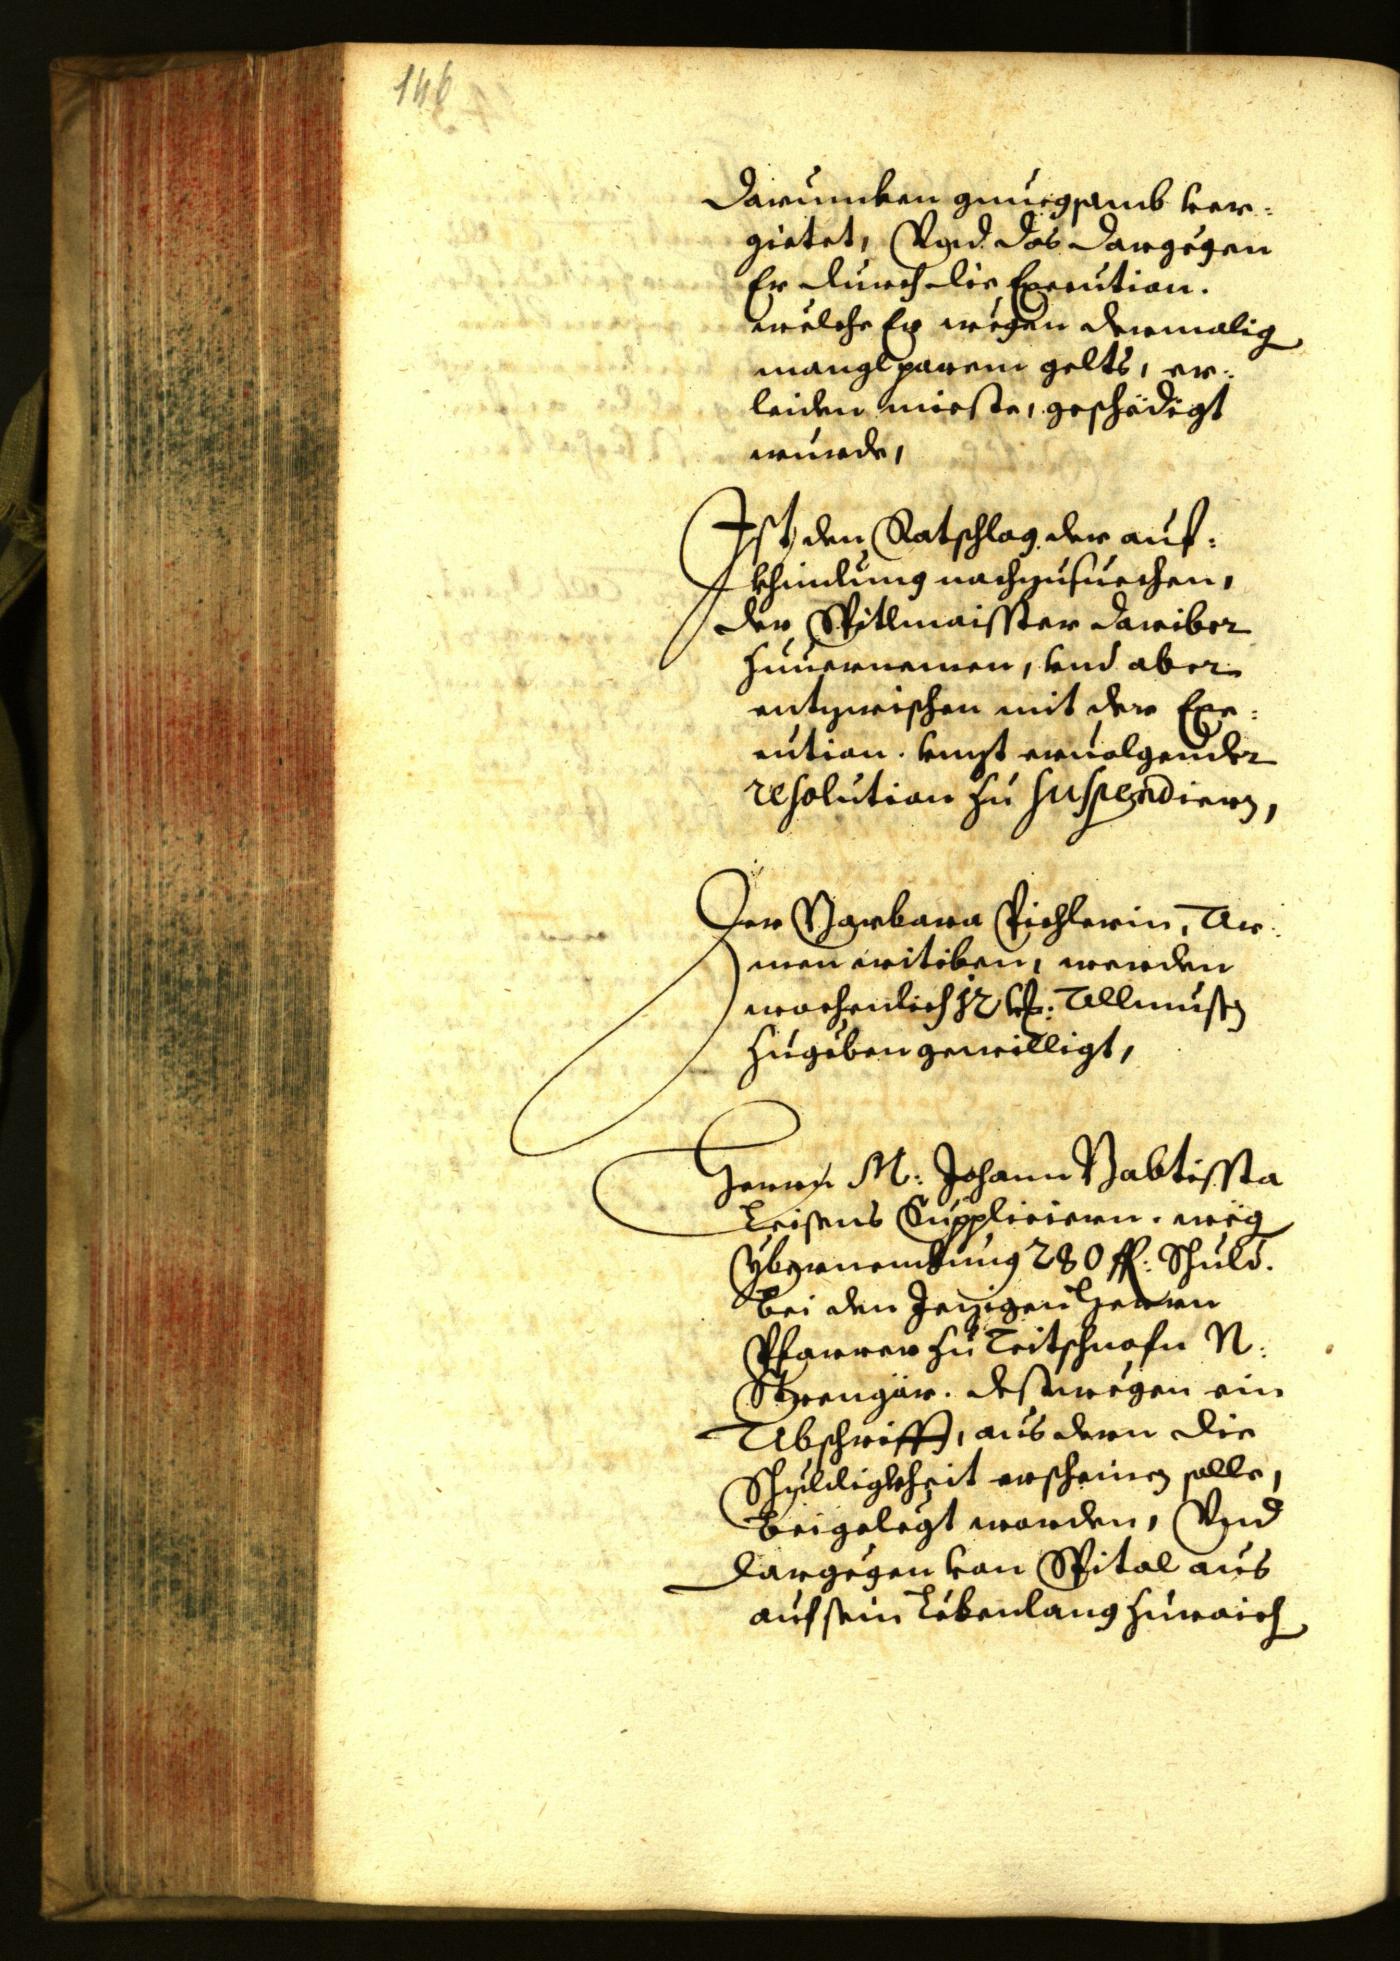 146
darumben gnuegsamb ver=
gietet, Vnd das dargegen
Er durch die Execution.
welche Er wegen dermalig
mangl parem gelts, er=
leiden mieste, geschedigt
wurde,
Ist den Ratschlag der auf=
khindung nachzusuechen,
der Spitlmaisster dariber
zuuernemen, vnd aber
entzwischen mit der Exe=
cution. vnzt eruolgender
resolution zu suspendiern,
Der Barbara Pichlerin, Ar=
men witiben, werden
wochenlich 12 kr: Allmusen
zugeben gewilligt,
Herrn M: Johann Babtissta
Leisens Suppliciern. weg
ybernembung 280 fl: Schuld.
bei den Jezigen Herrn
Pfarrer zu Teitschnofn N:
desswegen ein
Abschrifft, aus dern die
Schuldigkheit erscheinen solle,
beigelegt worden, Vnd
dargegen von Spital aus
auf sein Lebenlang zuraich